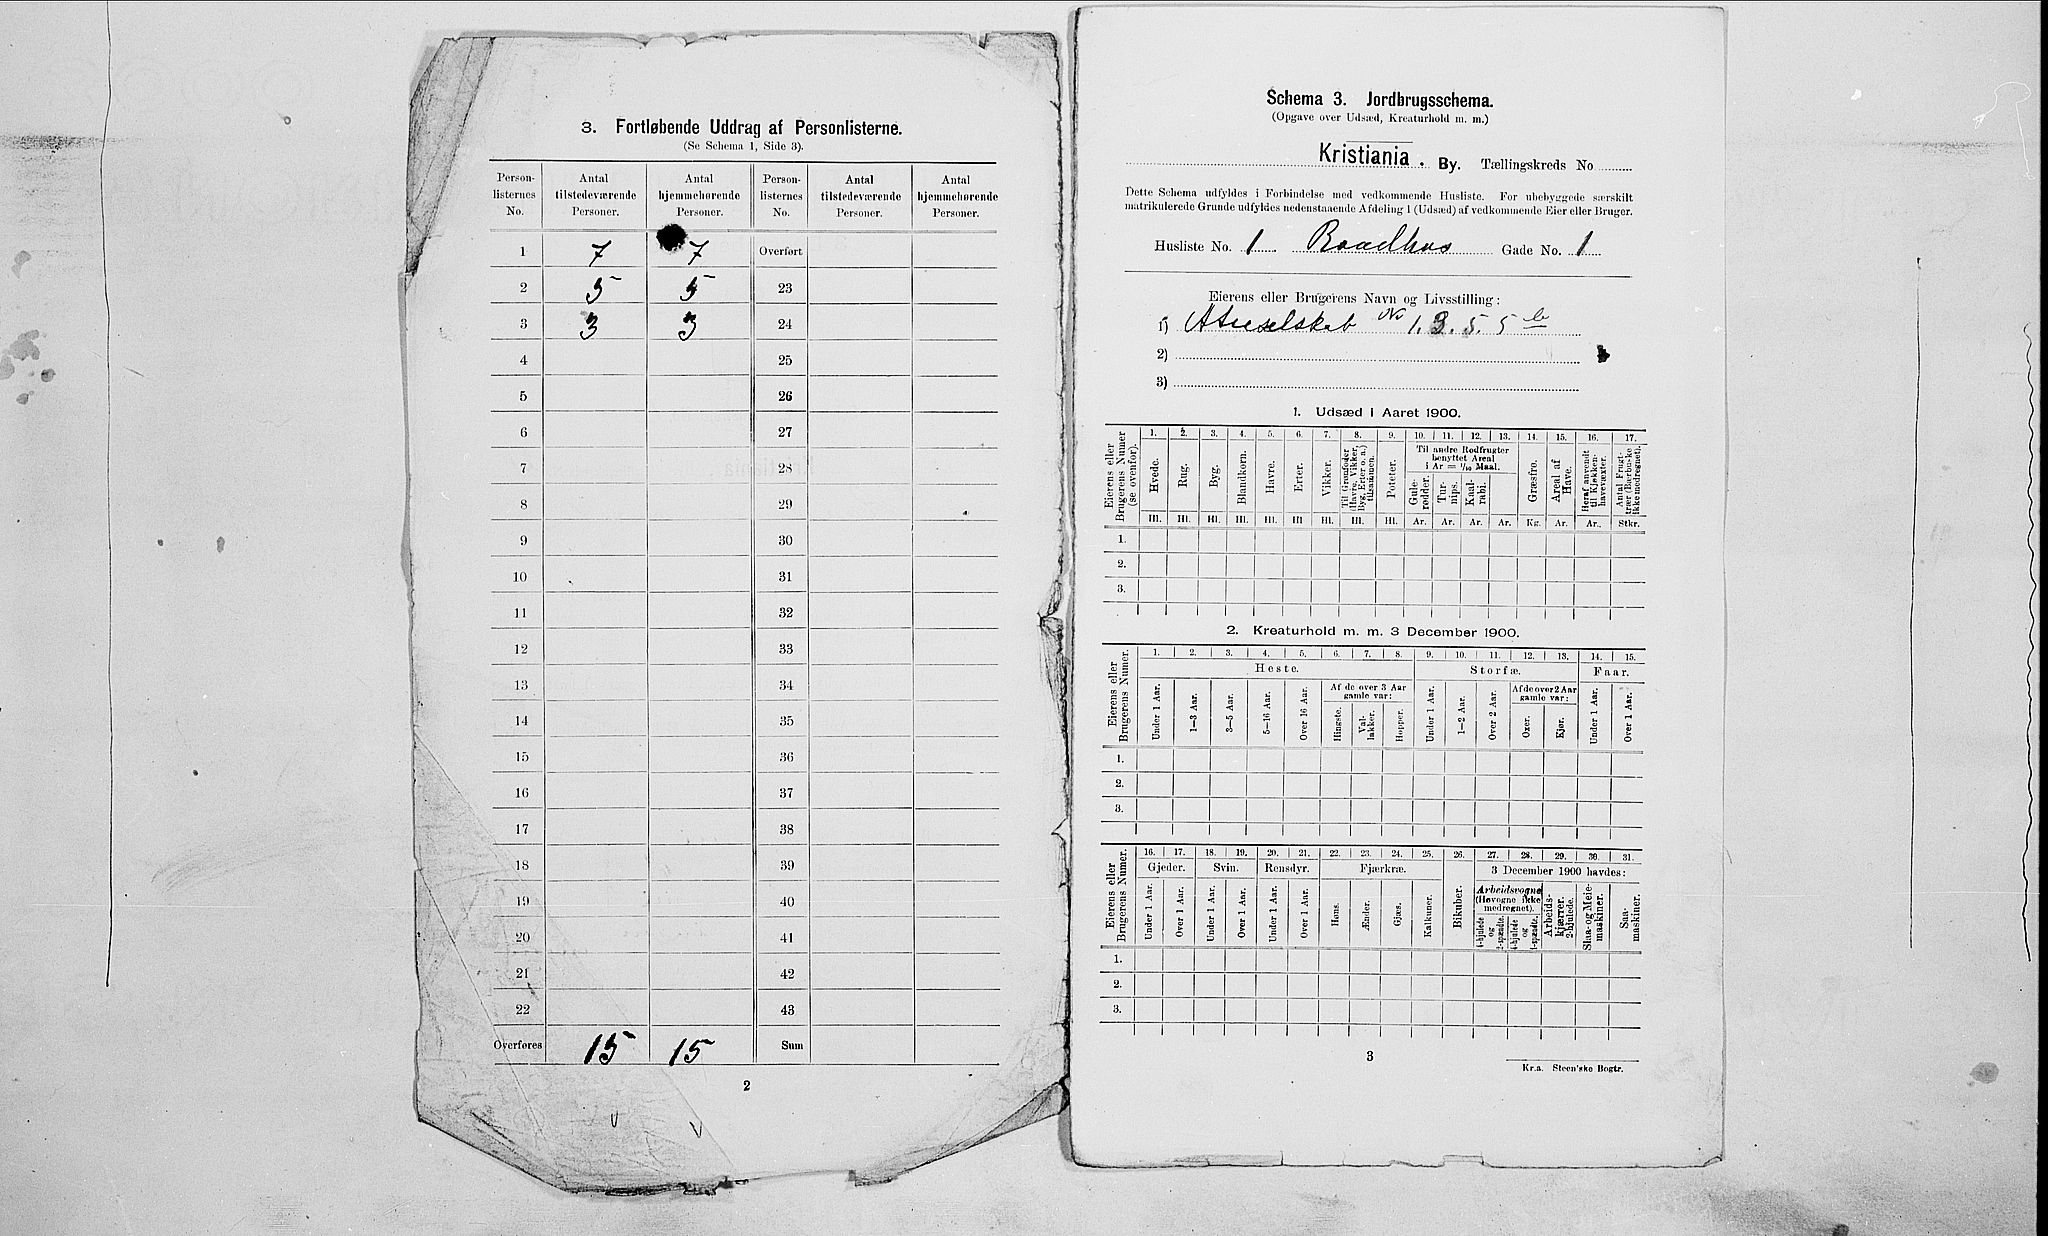 3. Fortløbende Uddrag af Personlisterne.
(Se Schema 1, Side 3).
Person-listernes No. Antal tilstedeværende Personer. Antal hjemmehørende Personer. Person-listernes No. Antal tilstedeværende Personer. Antal hjemmehørende Personer.
1 7 7 Overført
2 5 5 23
3 3 3 24
4 25
5 26
6 27
7 28
8 29
9 30
10 31
11 32
12 33
13 34
14 35
15 36
16 37
17 38
18 39
19 40
20 41
21 42
22 43
Overføres 15 15 Sum
2
Schema 3. Jordbrugsschema.
(Opgave over Udsæd, Kreaturhold m. m.)
Kristiania. By. Tællingskreds No
Dette Schema udfyldes i Forbindelse med vedkommende Husliste. For ubebyggede særskilt
matrikulerede Grunde udfyldes nedenstaaende Afdeling 1 (Udsæd) af vedkommende Eier eller Bruger.
Husliste No. 1 Raadhus Gade No. 1
Eierens eller Brugerens Navn og Livsstilling:
1) No 1. 3. 5. 5 b
2)
3)
1. Udsæd i Aaret 1900.
1. 2. 3. 4. 5. 6. 7. 8. 9. 10. 11. 12. 13. 14. 15. 16. 17.
Eierens eller Brugerens Numer (se ovenfor). Hvede. Rug. Byg. Blandkorn. Havre. Erter. Vikker. Til Grønfoder (Havre, Vikker, Byg, Erter o. a.) tilsammen. Poteter. Til andre Rodfrugter benyttet Areal i Ar = 1/10 Maal. Gule-rødder. Tur-nips. Kaal-rabi. Græsfrø. Areal af Have. Heraf anvendt til Kjøkken-havevæxter. Antal Frugt-trær (Bærbuske ikke medregnet).
Hl. Hl. Hl. Hl. Hl. Hl Hl. Hl. Hl. Ar. Ar. Ar. Ar. Kg. Ar. Ar. Stkr.
1.
2.
3.
2. Kreaturhold m. m. 3 December 1900.
1. 2. 3. 4. 5. 6. 7. 8. 9. 10. 11. 12. 13. 14. 15.
Eierens eller Brugerens Numer. Heste. Storfæ. Faar.
Af de over 3 Aar gamle var: Af de over 2 Aar gamle var:
Under 1 Aar. 1–3 Aar. 3–5 Aar. 5–16 Aar. Over 16 Aar. Hingste. Val-lakker. Hopper. Under 1 Aar. 1–2 Aar. Over 2 Aar. Oxer. Kjør. Under 1 Aar. Over 1 Aar.
1.
2.
3.
16. 17. 18. 19. 20. 21. 22. 23. 24. 25. 26. 27. 28. 29. 30. 31.
Eierens eller Brugerens Numer. Gjeder. Svin. Rensdyr. Fjærkræ. Bikuber. 3 December 1900 havdes:
Under 1 Aar. Over 1 Aar. Under 1 Aar. Over 1 Aar. Under 1 Aar. Over 1 Aar. Høns. Ænder. Gjæs. Kalkuner. Arbeidsvogne (Høvogne ikke medregnet). 4-hjulede og 2-spændte. 4-hjulede og 1-spændte. Arbeids-kjærrer, 2-hjulede. Slaa- og Meie-maskiner. Saa-maskiner.
1.
2.
3.
3
Kr.a. Steen'ske Bogtr.